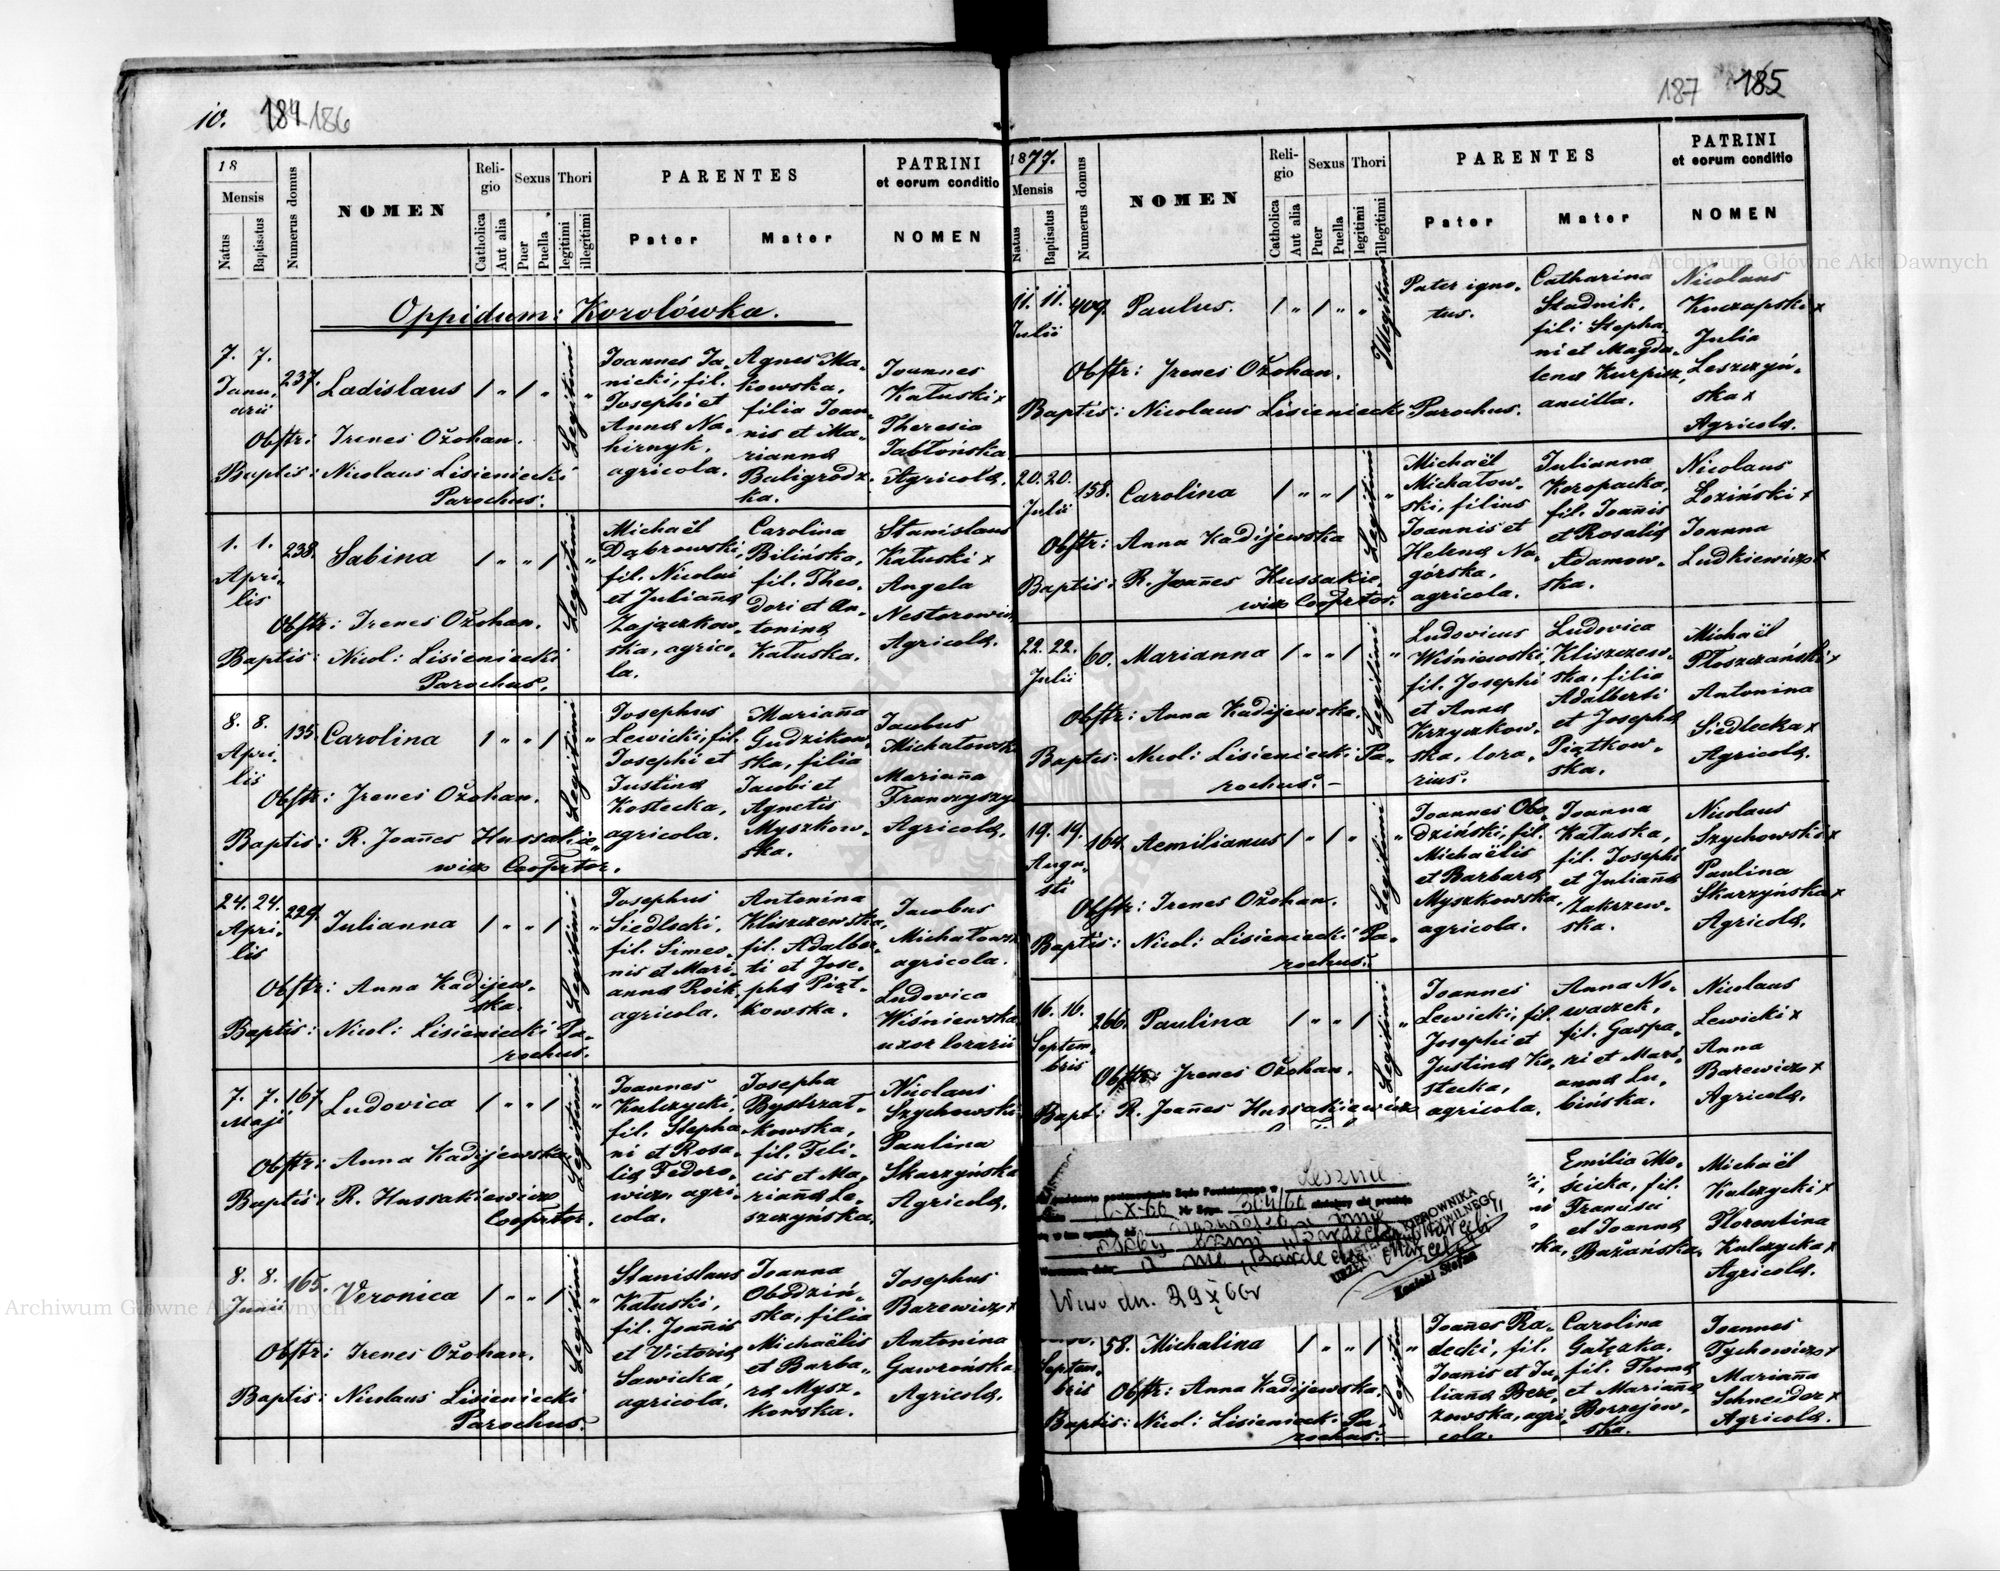 10. 184 186
18
Mensis
Natus
Baptisatus
Numerus domus
NOMEN
Religio
Catholica
Aut alia
Sexus
Puer
Puella
Thori
legitimi
illegitimi
PARENTES
Pater
Mater
PATRINI
et eorum conditio
NOMEN
Oppidum: Korolówka.
7. 7. Januarii 237. Ladislaus / " / " Legitimi "
Obstr: Irenes Ożohan.
Baptis: Nicolaus Lisieniecki
Parochus.
Joannes Ja-
nicki, fil.
Josephi et
Anna Na-
hirnyk,
agricola.
Agnes Ma-
kowska,
filia Joan-
nis et Ma-
rianna
Baligrodz-
ka.
Joannes
Katuski x
Theresia
Jabłońska
Agricola.
1. 1. Aprilis 238. Sabina / " " / Legitimi "
Obstr: Irenes Ożohan.
Baptis: Nicol: Lisieniecki
Parochus.
Michaël
Dąbrowski,
fil. Nicolai
et Julianna
Zajączkow-
ska, agrico-
la.
Carolina
Bilińska,
fil. Theo-
dori et An-
tonina
Katuska.
Stanislaus
Katuski x
Angela
Nestorowicz
Agricola.
8. 8. Aprilis 135. Carolina / " " / Legitimi "
Obstr: Irenes Ożohan.
Baptis: R. Joañes Hussakie-
wicz Cooprtor.
Josephus
Lewicki, fil.
Josephi et
Justina
Kostecka,
agricola.
Mariaña
Gudzikow-
ska, filia
Jacobi et
Agnetis
Myszkow-
ska.
Jacobus
Michałowski
Mariaña
Agricola.
24. 24. Aprilis 229. Julianna / " " / Legitimi "
Obstr: Anna Kadijew-
ska.
Baptis: Nicol: Lisieniecki Pa-
rochus.
Josephus
Siedlecki,
fil. Simeo-
nis et Mari-
anna Roik
agricola.
Antonina
Kliszczewska,
fil. Adalber-
ti et Jose-
pha Piąt-
kowska.
Jacobus
Michałowski
agricola.
Ludovica
Wiśniewska
uxor lorarii
7. 7. Maji 167. Ludovica / " " / Legitimi "
Obstr: Anna Kadijewska.
Baptis: R. Hussakiewicz
Cooprtor.
Joannes
Kulczycki,
fil. Stepha-
ni et Rosa-
lia Fedoro-
wicz, agri-
cola.
Josepha
Bystrzat-
kowska,
fil. Feli-
cis et Ma-
riaña Le-
szczyńska.
Nicolaus
Szychowski
Paulina
Skarzyńska
Agricola.
8. 8. Junii 165. Veronica / " " / Legitimi "
Obstr: Irenes Ożohan.
Baptis: Nicolaus Lisieniecki
Parochus.
Stanislaus
Katuski,
fil. Joañis
et Victoria
Sawicka,
agricola.
Joanna
Obodziń-
ska, filia
Michaëlis
et Barba-
ra Mysz-
kowska.
Josephus
Barewicz x
Antonina
Gawrońska
Agricola.
187 185
1877.
Mensis
Natus
Baptisatus
Numerus domus
NOMEN
Religio
Catholica
Aut alia
Sexus
Puer
Puella
Thori
legitimi
illegitimi
PARENTES
Pater
Mater
PATRINI
et eorum conditio
NOMEN
11. 11. Julii 409. Paulus. / " / " " Illegitimi
Obstr: Irenes Ożohan.
Baptis: Nicolaus Lisieniecki Parochus.
Pater igno-
tus.
Catharina
Stadnik,
fili Stepha-
ni et Magda-
lena Kurpisz,
ancilla.
Nicolaus
Kuczapski x
Julia
Leszczyń-
ska x
Agricola.
20. 20. Julii 158. Carolina / " " / Legitimi "
Obstr: Anna Kadijewska
Baptis: R. Joañes Hussakie-
wicz Cooprtor.
Michaël
Michałow-
ski, filius
Joannis et
Helena Na-
górska,
agricola.
Julianna
Koropacka,
fil. Joañis
et Rosalia
Adamow-
ska.
Nicolaus
Łoziński x
Joanna
Ludkiewicz x
22. 22. Julii 60. Marianna / " " / Legitimi "
Obstr: Anna Kadijewska.
Baptis: Nicol: Lisieniecki Pa-
rochus.
Ludovicus
Wiśniewski,
fil. Josephi
et Anna
Krzyczkow-
ska, lora-
rius.
Ludovica
Kliszczew-
ska, filia
Adalberti
et Josepha
Piątkow-
ska.
Michaël
Płoszczański x
Antonina
Siedlecka x
Agricola.
19. 19. Augusti 164. Aemilianus / " / " Legitimi "
Obstr: Irenes Ożohan.
Baptis: Nicol: Lisieniecki Pa-
rochus.
Joannes Obo-
dziński, fil.
Michaëlis
et Barbara
Myszkowska,
agricola.
Joanna
Katuska,
fil. Josephi
et Juliaña
Zakrzew-
ska.
Nicolaus
Szychowski x
Paulina
Skarzyńska x
Agricola.
16. 16. Septembris 266. Paulina / " " / Legitimi "
Obstr: Irenes Ożohan.
Bapt: R. Joañes Hussakiewicz
Joannes
Lewicki, fil.
Josephi et
Justina Ko-
stecka,
agricola.
Anna No-
waczek,
fil. Gaspa-
ri et Mari-
anna Lu-
bińska.
Nicolaus
Lewicki x
Anna
Barewicz x
Agricola.
Emilia Mo-
scicka, fil.
Francisci
et Joanna
Bażańska.
Michaël
Kulczycki x
Florentina
Kulczycka x
Agricola.
Lesznie
Nr Spr. 304/60
KIEROWNIKA
Konicki Stefan
Wwa dn. 29 X 60r
Septembris 58. Michalina / " " / Legitimi "
Obstr: Anna Kadijewska.
Baptis: Nicol: Lisieniecki Pa-
rochus.
Joañes Ra-
decki, fil.
Joañis et Ju-
liana Bere-
zowska, agri-
cola.
Carolina
Gałęzka,
fil. Thoma
et Mariaña
Borzejew-
ska.
Joannes
Tychowicz x
Marianna
Schneider x
Agricola.
Archiwum Główne Akt Dawnych
Archiwum Główne Akt Dawnych